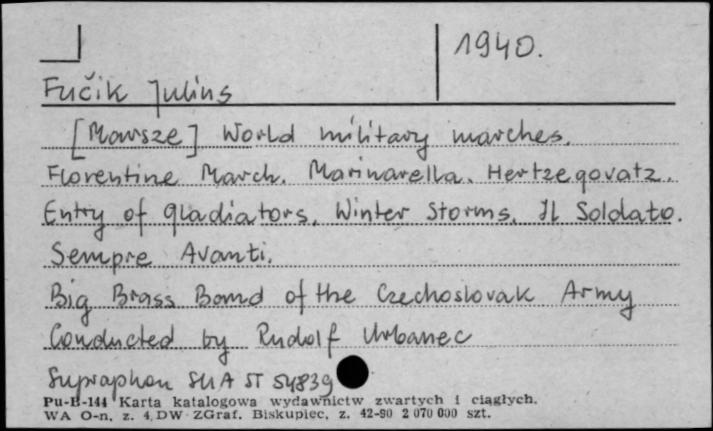 1940.
Fučik Julius
[Marsze] World military marches.
Florentine March. Marinarella. Hertzegovatz.
Entry of gladiators. Winter Storms. Il Soldato.
Sempre Avanti.
Big Brass Band of the Czechoslovak Army
Conducted by Rudolf Urbanec
Supraphon SUA ST 54839
Pu-B-144 Karta katalogowa wydawnictw zwartych i ciągłych.
WA O-n. z. 4. DW ZGraf. Biskupiec, z. 42-80 2 070 000 szt.